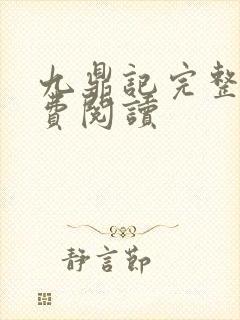 九鼎記完整
費閱讀
靜言節